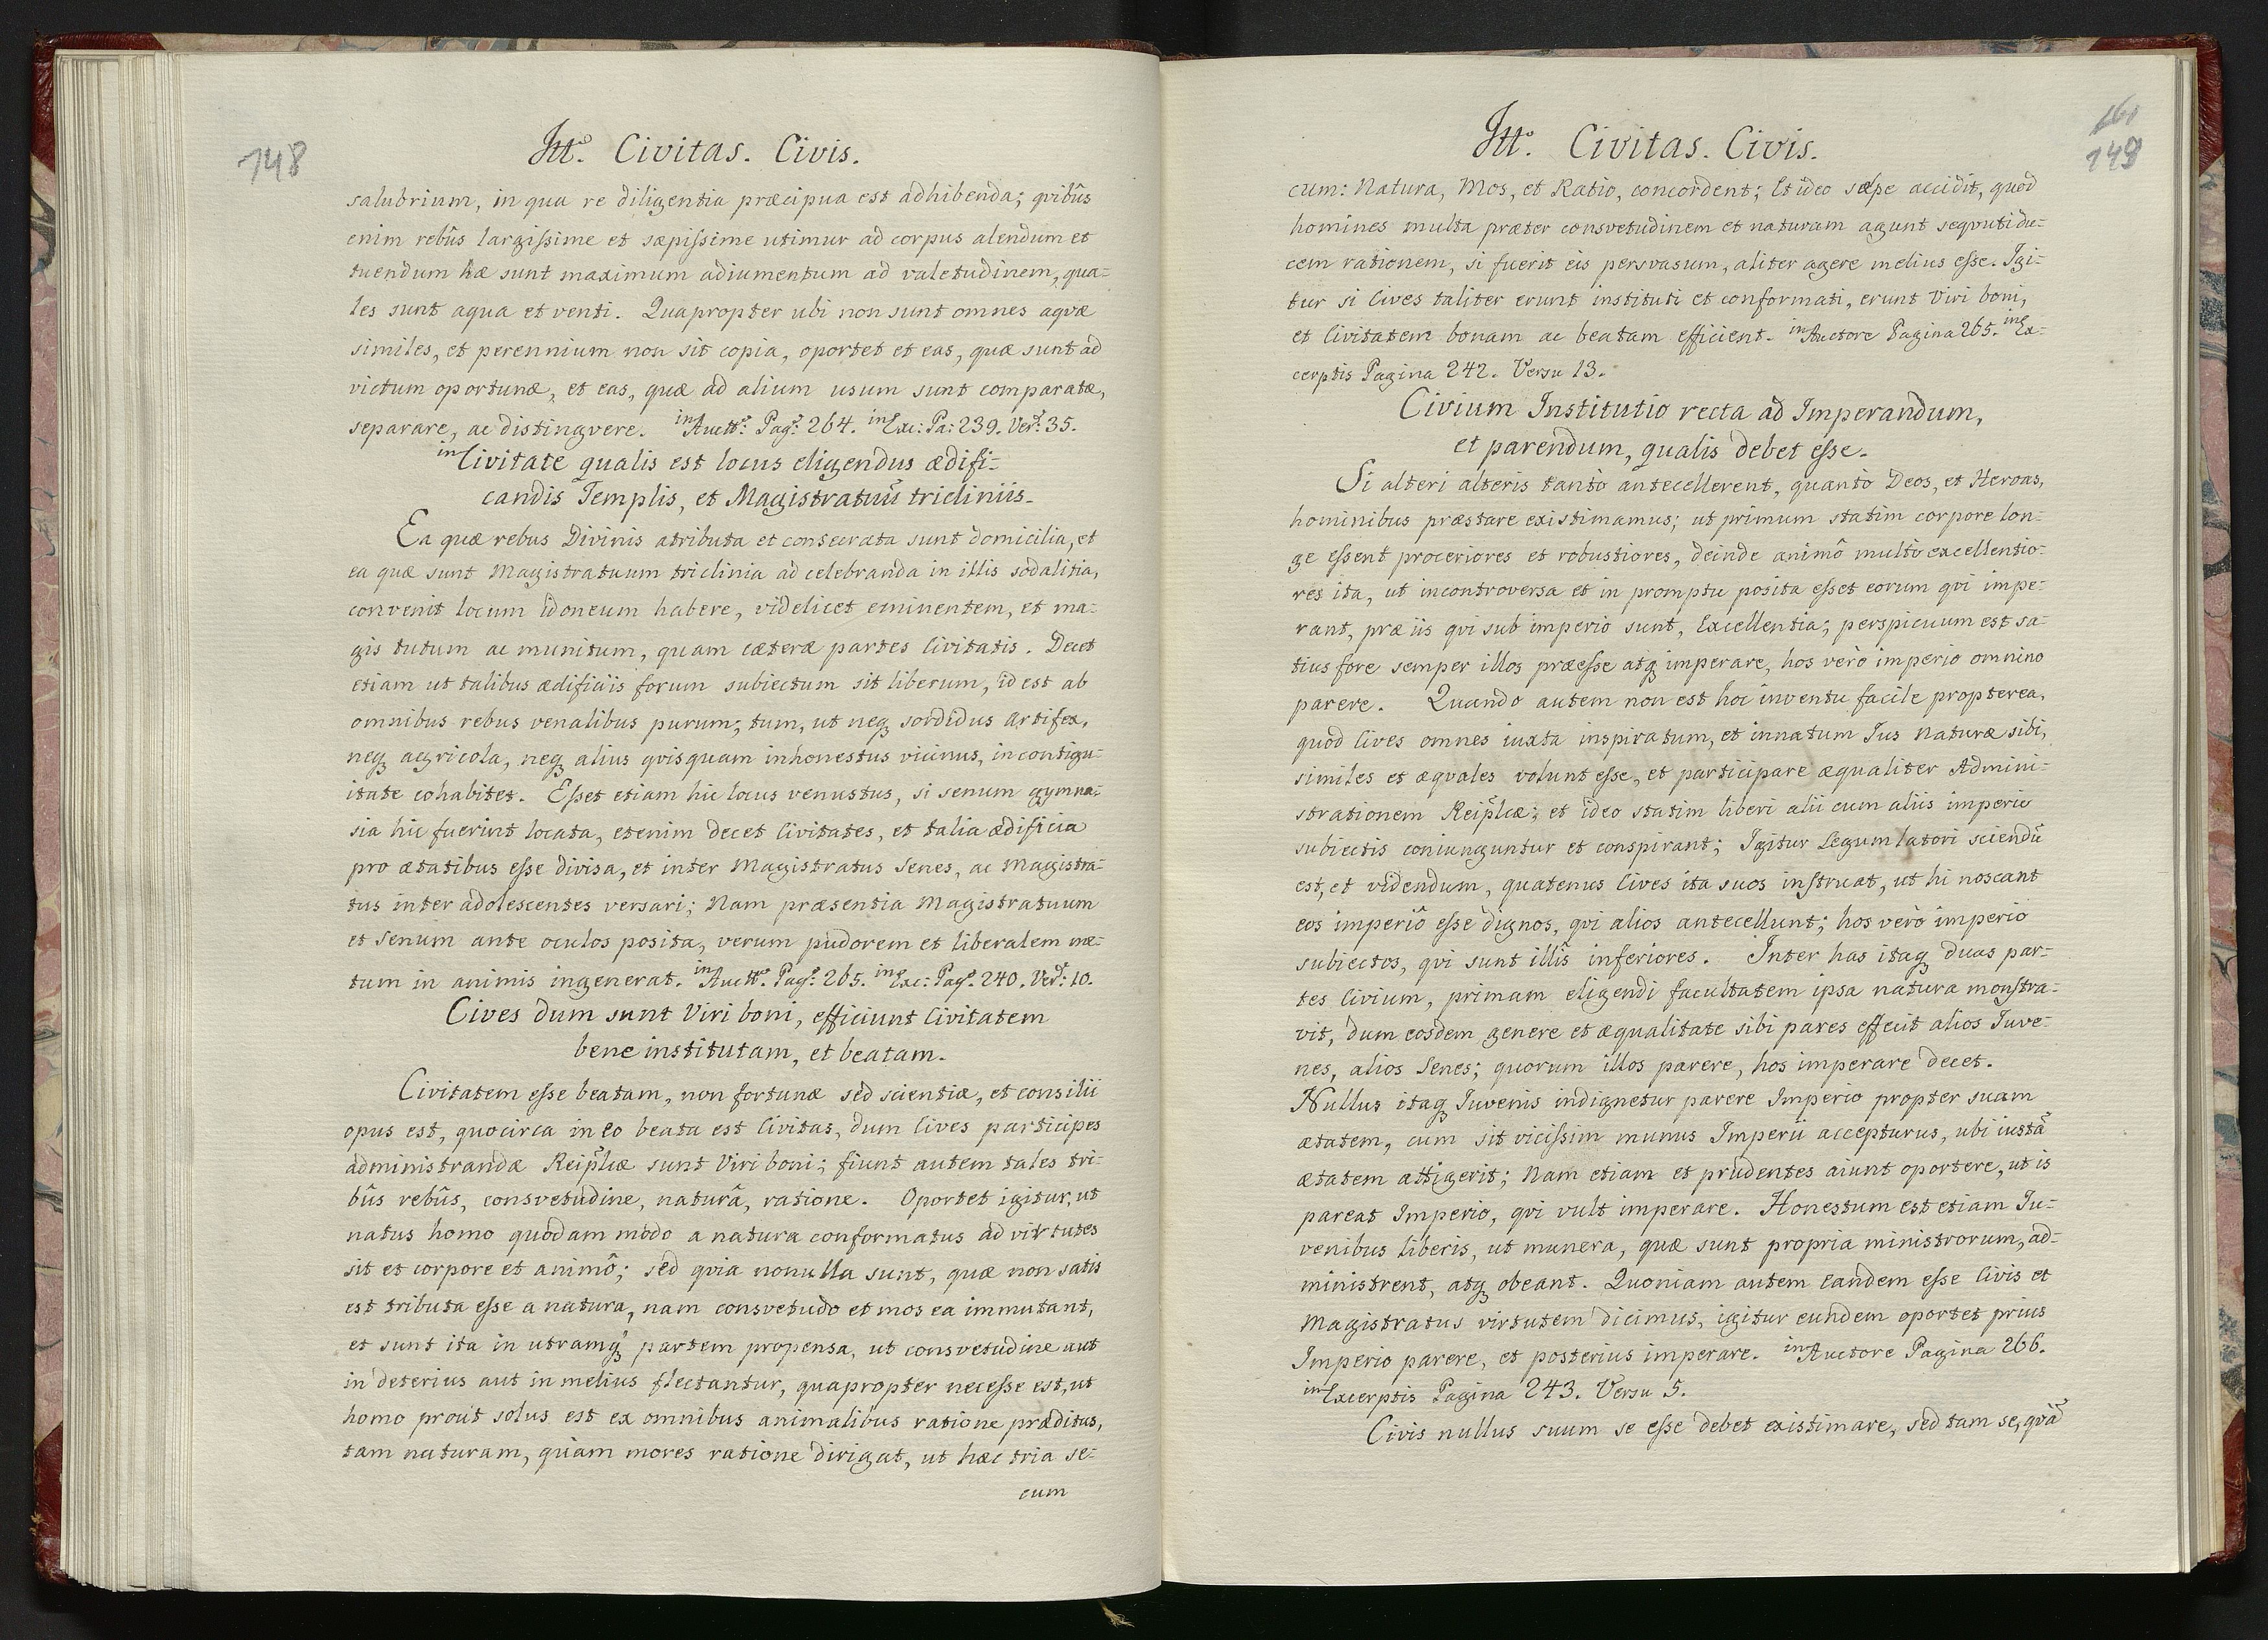 748
Itt.º Civitas. Civis.
salubrium, in qua re diligentia præcipua est adhibenda; qvibûs
enim rebûs largissime et sæpissime utimur ad corpus alendum et
tuendum hæ sunt maximum adiumentum ad valetudinem, qua-
les sunt aqua et venti. Quapropter ubi non sunt omnes aqvæ
similes, et perennium non sit copia, oportet et eas, quæ sunt ad
victum oportunæ, et eas, quæ ad alium usum sunt comparatæ,
separare, ac distingvere. in Auctt: Pag: 264. in Exc: Pa: 239. Ver: 35.
in Civitate qualis est locus eligendus ædifi-
candis Templis, et Magistratuũ tricliniis.
Ea quæ rebus Divinis atributa et consecrata sunt domicilia, et
ea quæ sunt Magistratuum triclinia ad celebranda in illis sodalitia,
convenit locum idoneum habere, videlicet eminentem, et ma-
gis tutum ac munitum, quam cæteræ partes Civitatis. Decet
etiam ut talibus ædificiis forum subiectum sit liberum, id est ab
omnibus rebus venalibus purum; tum, ut neq; sordidus Artifex,
neq; agricola, neq; alius qvisquam inhonestus vicinus, in contigu-
itate cohabitet. Esset etiam hic locus venustus, si senum gymna-
sia hic fuerint locata, etenim decet Civitates, et talia ædificia
pro ætatibus esse divisa, et inter Magistratus Senes, ac Magistra-
tus inter adolescentes versari; Nam præsentia Magistratuum
et Senum ante oculos posita, verum pudorem et liberalem me-
tum in animis ingenerat. in Auctt: Pag: 265. in Exc: Pag: 240. Ver: 10.
Cives dum sunt Viri boni, efficiunt Civitatem
bene institutam, et beatam.
Civitatem esse beatam, non fortunæ sed scientiæ, et consilii
opus est, quocirca in eo beata est Civitas, dum Cives participes
administrandæ Reip̃licæ sunt Viri boni; fiunt autem tales tri-
bûs rebûs, consvetudine, naturâ, ratione. Oportet igitur, ut
natus homo quodam modo a natura conformatus ad virtutes
sit et corpore et animô; sed qvia nonulla sunt, quæ non satis
est tributa esse a natura, nam consvetudo et mos ea immutant,
et sunt ita in utramq; partem propensa, ut consvetudine aut
in deterius aut in melius flectantur, quapropter necesse est, ut
homo prout solus est ex omnibus animalibus ratione præditus,
tam naturam, quam mores ratione dirigat, ut hæc tria se-
cum
161
149
Itt.º Civitas. Civis.
cum: Natura, Mos, et Ratio, concordent; Et ideo sæpe accidit, quod
homines multa præter consvetudinem et naturam agunt seqvuti du-
cem rationem, si fuerit eis persvasum, aliter agere melius esse. Igi-
tur si Cives taliter erunt instituti et conformati, erunt Viri boni,
et Civitatem bonam ac beatam efficient. in Auctore Pagina 265. in Ex-
cerptis Pagina 242. Versu 13.
Civium Institutio recta ad Imperandum,
et parendum, qualis debet esse.
Si alteri alteris tantò antecellerent, quantò Deos, et Heroas,
hominibus præstare existimamus; ut primum statim corpore lon-
ge essent proceriores et robustiores, deinde animô multò excellentio-
res ita, ut incontroversa et in promptu posita esset eorum qvi impe-
rant, præ iis qvi sub imperio sunt, Excellentia; perspicuum est sa-
tius fore semper illos præesse atq; imperare, hos verò imperio omnino
parere. Quando autem non est hoc inventu facile propterea,
quod Cives omnes iuxta inspiratum, et innatum Ius Naturæ sibi,
similes et æqvales volunt esse, et participare æqualiter Admini-
strationem Reip̃licæ; et ideo statim liberi alii cum aliis imperio
subiectis coniunguntur et conspirant; Igitur Legumlatori sciendũ
est, et videndum, quatenus Cives ita suos instruat, ut hi noscant
eos imperiô esse dignos, qvi alios antecellunt; hos verò imperio
subiectos, qvi sunt illis inferiores. Inter has itaq; duas par-
tes Civium, primam eligendi facultatem ipsa natura monstra-
vit, dum eosdem genere et æqualitate sibi pares effecit alios Iuve-
nes, alios Senes; quorum illos parere, hos imperare decet.
Nullus itaq; Iuvenis indignetur parere Imperio propter suam
ætatem, cum sit vicissim munus Imperii accepturus, ubi iustã
ætatem attigerit; Nam etiam et prudentes aiunt oportere, ut is
pareat Imperio, qvi vult imperare. Honestum est etiam Iu-
venibus liberis, ut munera, quæ sunt propria ministrorum, ad-
ministrent, atq; obeant. Quoniam autem Eandem esse Civis et
Magistratus virtutem dicimus, igitur eundem oportet prius
Imperio parere, et posterius imperare. in Auctore Pagina 266.
in Excerptis Pagina 243. Versu 5.
Civis nullus suum se esse debet existimare, sed tam se, qvã